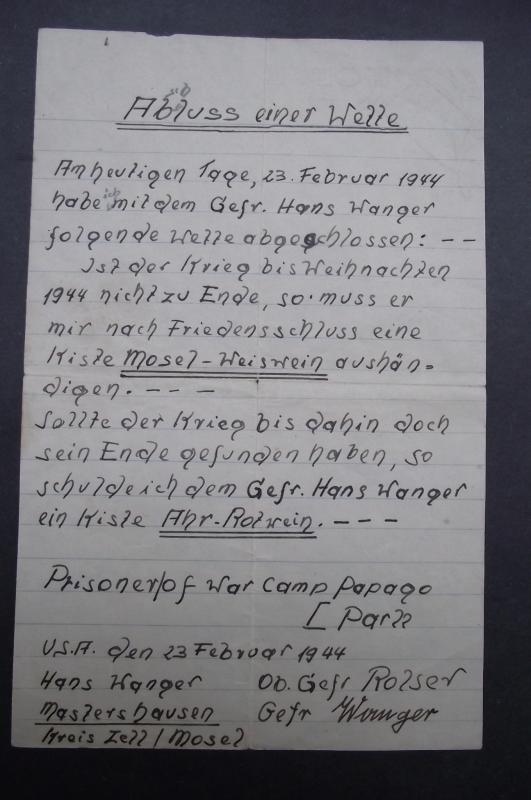 Abluss einer Wette
sch
Am heutigen Tage, 23. Februar 1944
habe ich mit dem Gefr. Hans Wanger
folgende Wette abgeschlossen: – –
Ist der Krieg bis Weihnachten
1944 nicht zu Ende, so muss er
mir nach Friedensschluss eine
Kiste Mosel-Weiswein aushän=
digen. – – –
Sollte der Krieg bis dahin doch
sein Ende gefunden haben, so
schulde ich dem Gefr. Hans Wanger
ein Kiste Ahr-Rotwein. – – –
Prisoner/of War Camp Papago
[ Park
U.S.A. den 23 Februar 1944
Hans Wanger Ob. Gefr Rotser
Mastershausen Gefr Wanger
Kreis Zell / Mosel